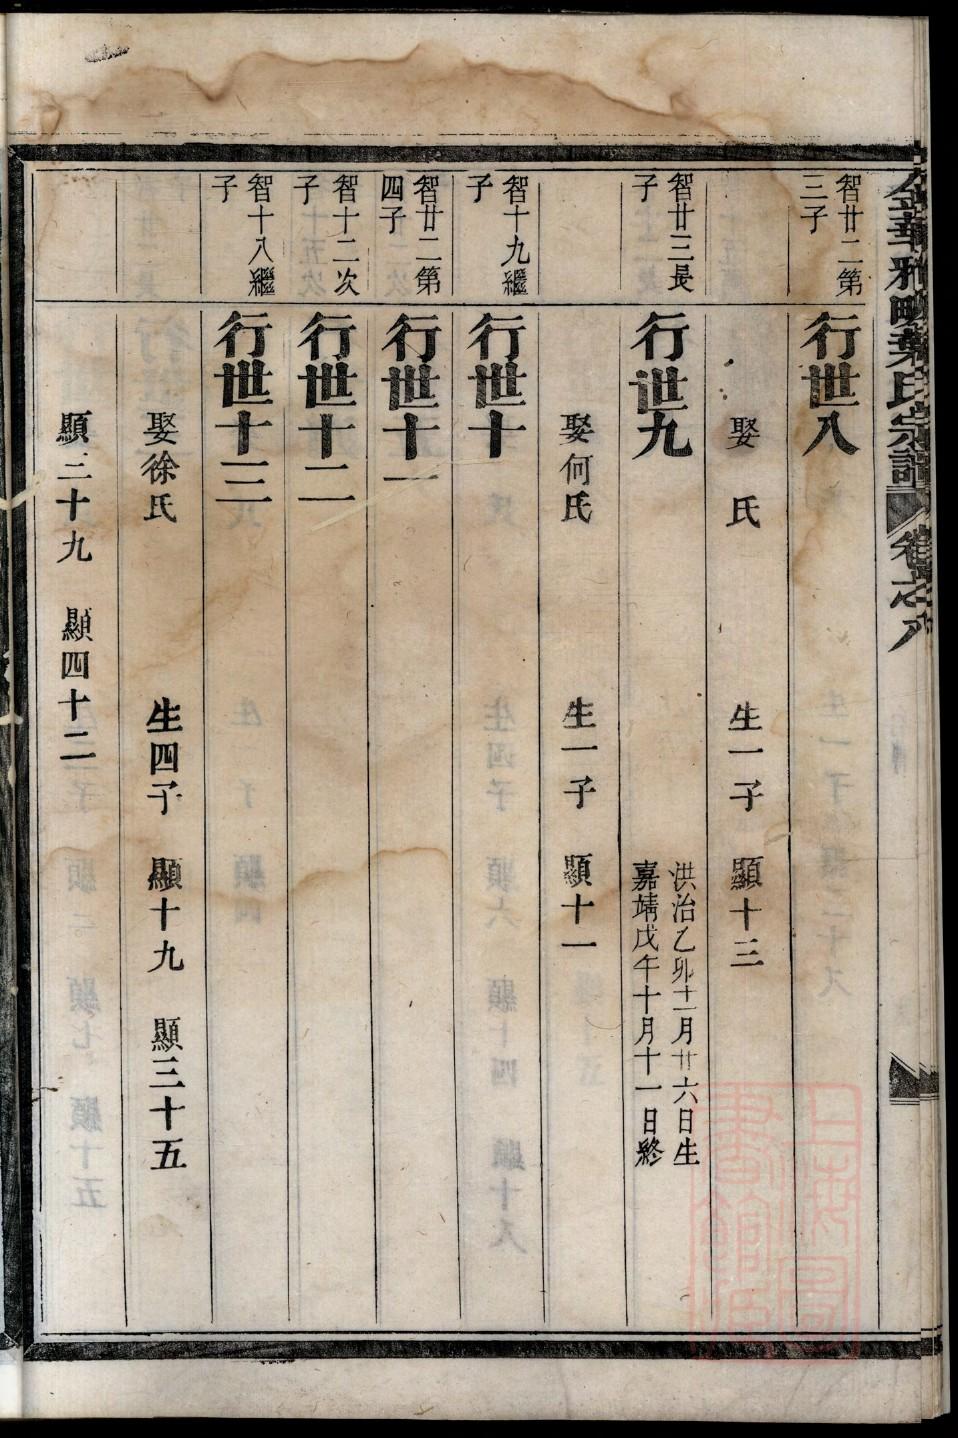 金華雅畈葉氏宗譜 卷之八
智廿二第
三子
行世八
娶 氏 生一子 顯十三
智廿三長
子
行世九
洪治乙卯十一月廿六日生
嘉靖戊午十月十一日終
娶何氏 生一子 顯十一
智十九繼
子
行世十
智廿二第
四子
行世十一
智十二次
子
行世十二
智十八繼
子
行世十三
娶徐氏 生四子 顯十九 顯三十五
顯三十九 顯四十二